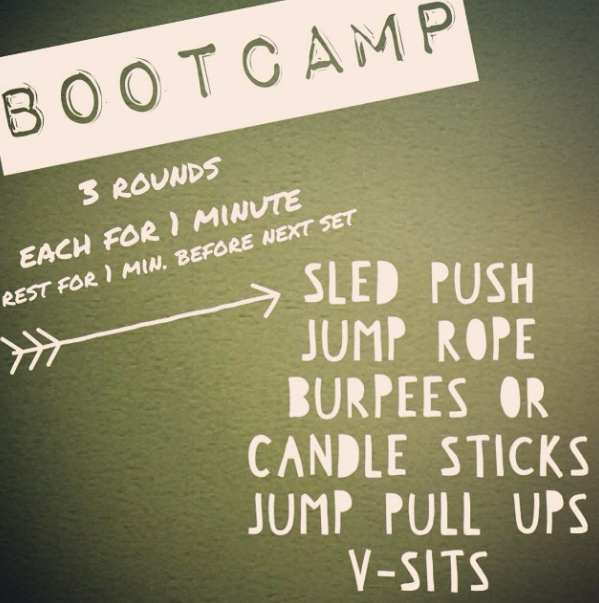 BOOTCAMP
3 ROUNDS
EACH FOR 1 MINUTE
REST FOR 1 MIN. BEFORE NEXT SET
SLED PUSH
JUMP ROPE
BURPEES OR
CANDLE STICKS
JUMP PULL UPS
V-SITS